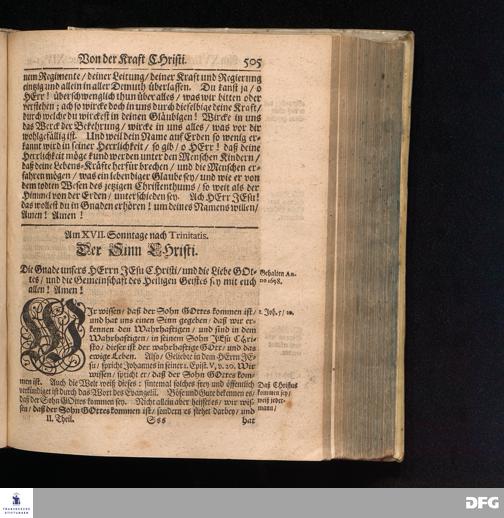 Von der Kraft CHristi. 505
nem Regimente/ deiner Leitung/ deiner Kraft und Regierung
eintzig und allein in aller Demuth überlassen. Du kanst ja/ o
HErr! überschwenglich thun über alles/ was wir bitten oder
verstehen; ach so wircke doch in uns durch dieselbige deine Kraft/
durch welche du wirckest in deinen Gläubigen! Wircke in uns
das Werck der Bekehrung/ wircke in uns alles/ was vor dir
wohlgefällig ist. Und weil dein Name auf Erden so wenig er-
kannt wird in seiner Herrlichkeit/ so gib/ o HErr! daß deine
Herrlichkeit möge kund werden unter den Menschen Kindern/
daß deine Lebens-Kräfte herfür brechen/ und die Menschen er-
fahren mögen/ was ein lebendiger Glaube sey/ und wie er von
dem todten Wesen des jetzigen Christenthums/ so weit als der
Himmel von der Erden/ unterschieden sey. Ach HErr JEsu!
das wollest du in Gnaden erhören! um deines Namens willen/
Amen! Amen!
Am XVII. Sonntage nach Trinitatis.
Der Sinn CHristi.
Die Gnade unsers HErrn JEsu CHristi/ und die Liebe GOt-
tes/ und die Gemeinschaft des Heiligen Geistes sey mit euch
allen! Amen!
Gehalten An-
no 1698.
WIr wissen/ daß der Sohn GOttes kommen ist/
und hat uns einen Sinn gegeben/ daß wir er-
kennen den Wahrhaftigen/ und sind in dem
Wahrhaftigen/ in seinem Sohn JEsu Chri-
sto/ dieser ist der wahrhaftige GOtt/ und das
ewige Leben. Also/ Geliebte in dem HErrn JE-
su/ spricht Johannes in seiner 1. Epist. V, v. 20. Wir
wissen/ spricht er/ daß der Sohn GOttes kom-
men ist. Auch die Welt weiß dieses: sintemal solches frey und öffentlich
verkündiget ist durch das Wort des Evangelii. Böse und Gute bekennen es/
daß der Sohn GOttes kommen sey. Nicht allein aber heisset es/ wir wis-
sen/ daß der Sohn GOttes kommen ist/ sondern es stehet darbey/ und
1. Joh. 5/ 20.
Daß Christus
kommen sey/
weiß jeder-
mann/
II. Theil. Sss hat
FRANCKESCHE
STIFTUNGEN
DFG